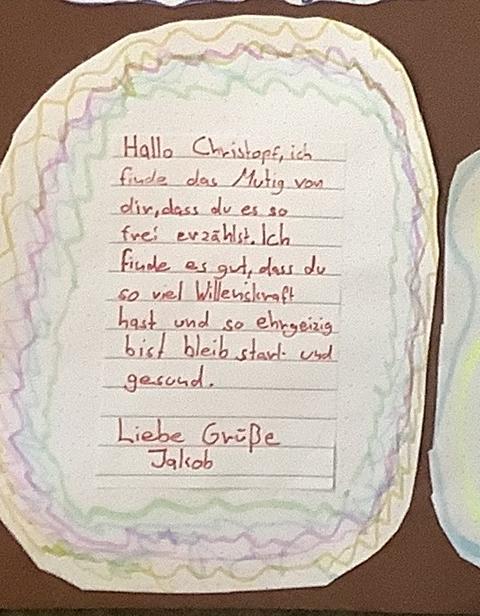 Hallo Christopf, ich
finde das Mutig von
dir, dass du es so
frei erzählst. Ich
finde es gut, dass du
so viel Willenskraft
hast und so ehrgeizig
bist bleib stark und
gesund.
Liebe Grüße
Jakob